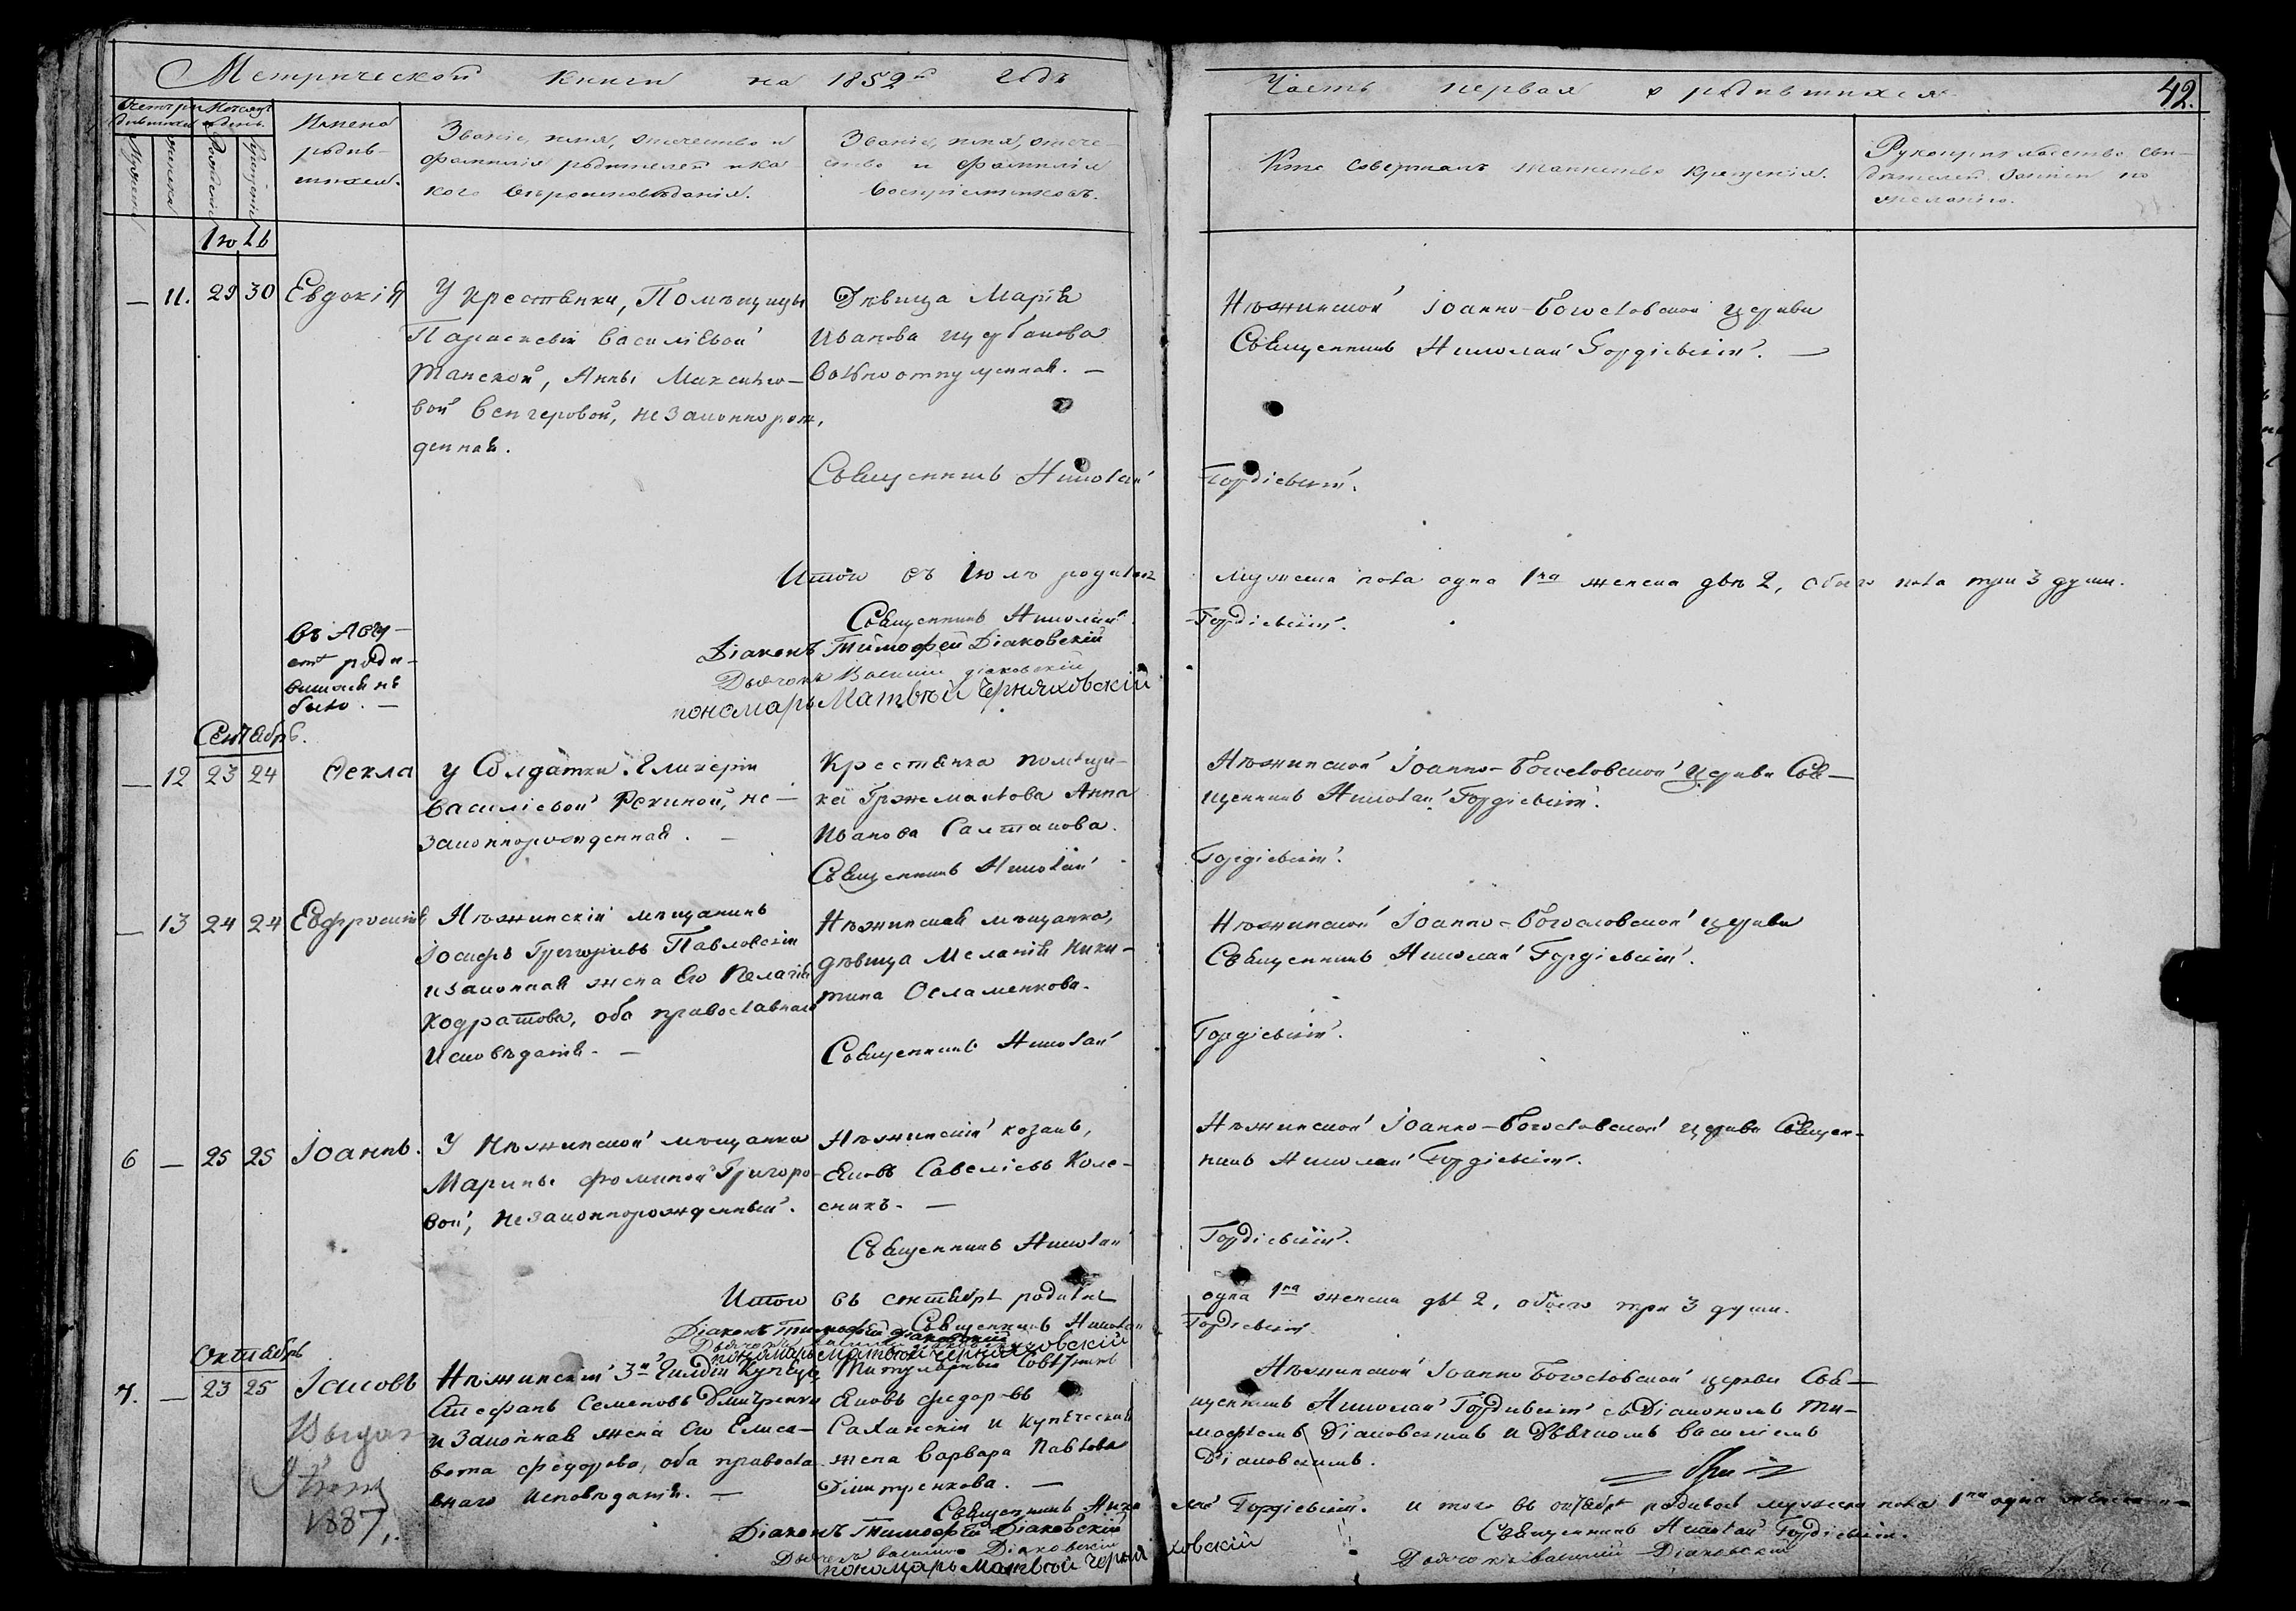 Метрической книги на 1852й годъ
Часть первая о родившихся.
42.
Счетъ родившихся
Мѣсяцъ и день.
Мужеска
женска
Рожденія
Крещенія
Имена
родив-
шихся.
Званіе, имя, отечество и
фамилія родителей и ка
кого вѣроисповѣданія.
Званіе, имя, отече-
ство и фамилія
воспріемниковъ.
Кто совершалъ таинство крещенія.
Рукоприкладство сви-
дѣтелей записи по
желанію.
Іюль
— 11. 29 30 Евдокія
У крестьянки, Помѣщицы
Параскевіи Василіевой
Танской, Анны Максимо-
вой Венгеровой, незаконнорож,
денная.
Дѣвица Марія
Иванова Щербакова
вольноотпущенная. —
Нѣжинской Іоанно-Богословской церкви
Священникъ Николай Гордіевскій. —
Священникъ Николай Гордіевскій.
Итого въ Іюлѣ родилось мужеска пола одна 1на женска двѣ 2, обоего пола три 3 души.
Священникъ Николай Гордіевскій.
Діаконъ Тимофей Діаковскій
Дьячокъ Василій Діаковскій
пономарь Матвѣй Черняховскій
въ Авгу-
стѣ роди-
вшихся не
было. —
Сентябрь.
— 12 23 24 Ѳекла
у Солдатки Гликеріи
Василіевой Рекиной, не-
законнорожденная. —
Крестьянка помѣщи-
ка Гржемаилова Анна
Иванова Салтанова.
Нѣжинской Іоанно-Богословской Церкви Свя-
щенникъ Николай Гордіевскій.
Священникъ Николай Гордіевскій.
— 13 24 24 Евфросинія
Нѣжинскій мѣщанинъ
Іосифъ Григоріевъ Павловскій
и законная жена Его Пелагія
Кодратова, оба православнаго
Исповѣданія. —
Нѣжинская мѣщанка,
дѣвица Меланія Ники-
тина Осламенкова.
Нѣжинской Іоанно-Богословской церкви
Священникъ Николай Гордіевскій.
Священникъ Николай Гордіевскій.
6 — 25 25 Іоаннъ.
У Нѣжинской мѣщанки
Марины Фоминой Григоро-
вой, незаконнорожденный.
Нѣжинскій козакъ,
Яковъ Савеліевъ Коле-
сникъ. —
Нѣжинской Іоанно-Богословской церкви Священ-
никъ Николай Гордіевскій.
Священникъ Николай Гордіевскій.
Итого въ сентябрѣ родилось одна 1на женска двѣ 2, обоего три 3 души.
Священникъ Николай Гордіевскій.
Діаконъ Тимофей Діаковскій
пономарь Матвѣй Черняховскій
Октябрь
7. — 23 25 Іаковъ
Нѣжинскій 3й Гилдіи Купецъ
Стефанъ Семеновъ Дмитренко
и законная жена Его Елиса-
вета Федорова, оба правосла
внаго Исповѣданія. —
Титулярный Совѣтникъ
Яковъ Федоровъ
Саханскій и купеческая
жена Варвара Павлова
Димитренкова. —
Нѣжинской Іоанно Богословской церкви Свя-
щенникъ Николай Гордіевскій съ Діакономъ Ти-
мофеемъ Діаковскимъ и Дьячкомъ Василіемъ
Діаковскимъ.
1887,
Священникъ Николай Гордіевскій. Итого въ октябрѣ родилось мужеска пола 1на одна
Діаконъ Тимофей Діаковскій
Священникъ Николай Гордіевскій.
Дьячокъ Василій Діаковскій
Дьячокъ Василій Діаковскій
пономарь Матвѣй Черняховскій